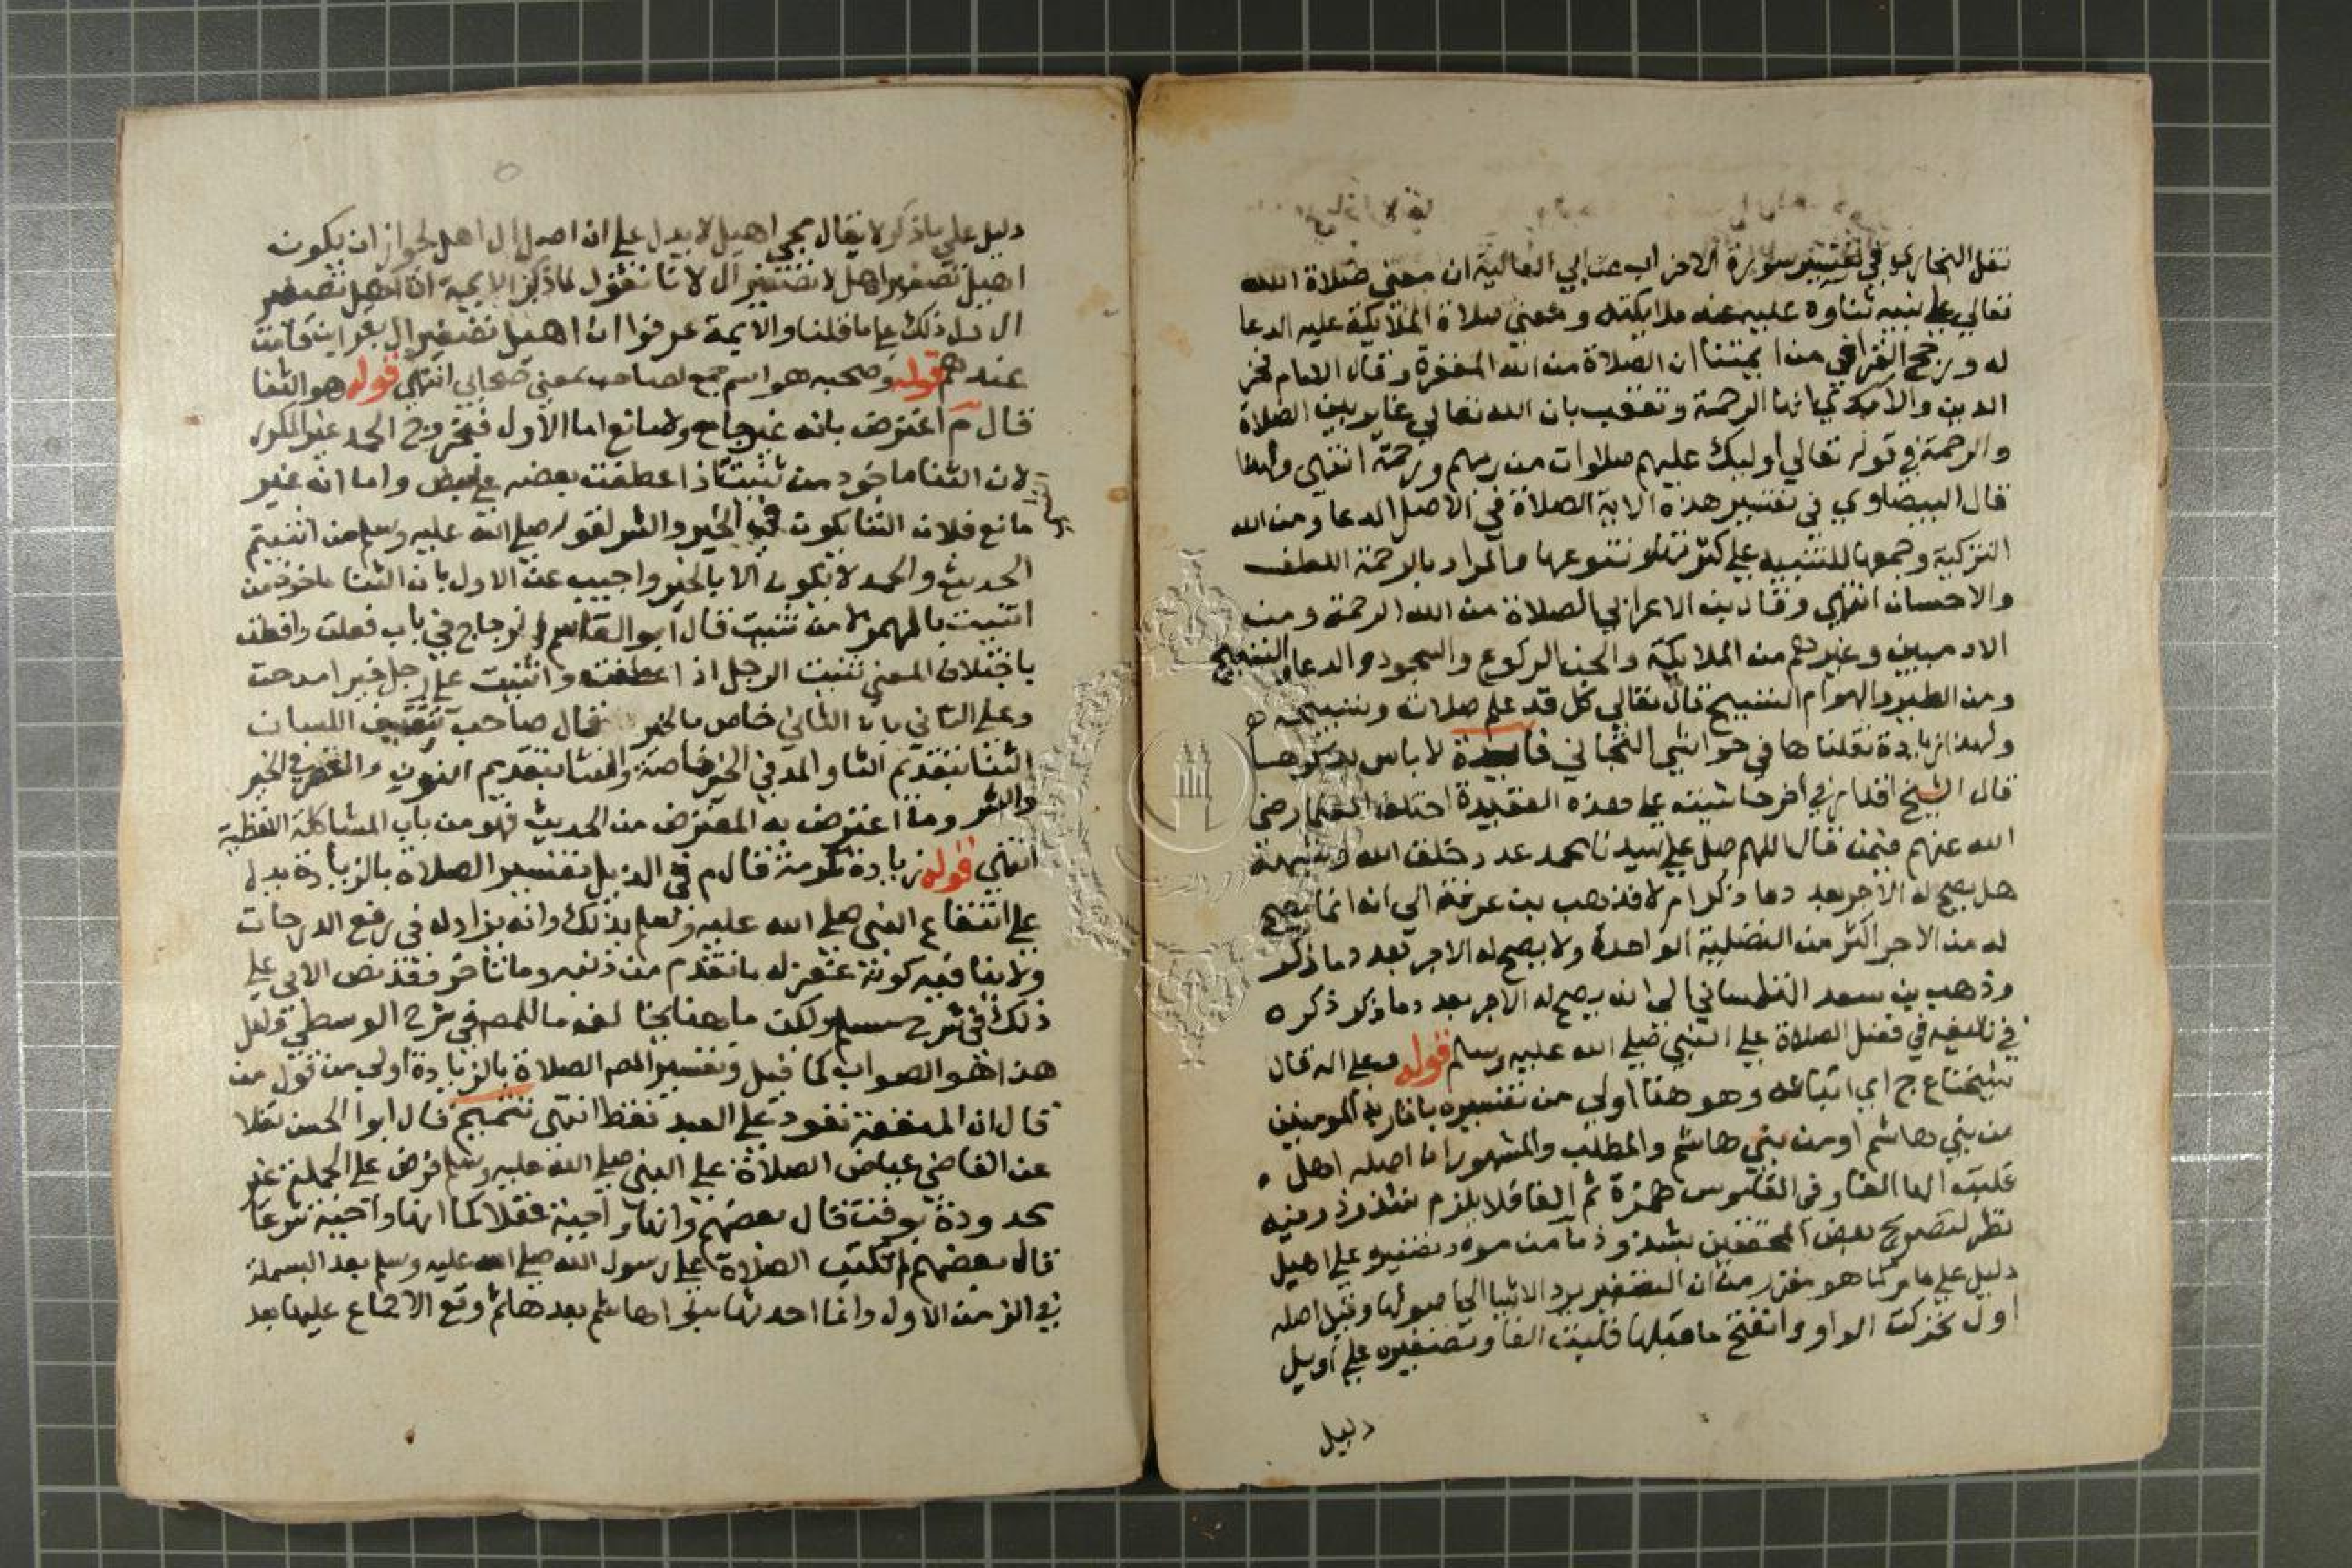 نقل البخاري في تفسير سورة الاحزاب عن ابي العالية ان معني صلاة الله
تعالي علي نبيه ثناوه عليه عند ملايكته ومعني صلاة الملايكة عليه الدعا
له ورجح القرافي من ايمتنا ان الصلاة من الله المغفرة وقال الامام فخر
الدين والآمدي انها الرحمة وتعقب بان الله تعالي غاير بين الصلاة
والرحمة في قوله تعالي اوليك عليهم صلوات من ربهم ورحمة انتهي ولهذا
قال البيضاوي في تفسير هذه الاية الصلاة في الاصل الدعا ومن الله
التزكية وجمعها للتنبيه علي كثرتها وتنوعها والمراد بالرحمة اللطف
والاحسان انتهي وقال بن الاعرابي الصلاة من الله الرحمة ومن
الادميين وغيرهم من الملايكة والجن الركوع والسجود والدعا والتسبيح
ومن الطير والهوام التسبيح قال تعالي كل قد علم صلاته وتسبيحه ه
ولهذا زيادة نقلناها في حواشي التجاني فايدة لا باس بذكرها
قال الشيخ اقدار في اخر حاشيته علي هذه العقيدة اختلف العلما رضي
الله عنهم فيمن قال اللهم صل علي سيدنا محمد عدد خلق الله وشبهه
هل يصح له الاجر بعدد ما ذكر ام لا فذهب بن عرفة الي انه انما يصح
له من الاجر اكثر من التصلية الواحدة ولا يصح له الاجر بعدد ما ذكر
وذهب بن سعد التلمساني الي انه يصح له الاجر بعدد ما ذكر ذكره
في تاليفه في فضل الصلاة علي النبي صلي الله عليه وسلم قوله وعلي اله قال
شيخنا ع ج اي اتباعه وهو هنا اولي من تفسيره باقاربه المومنين
من بني هاشم او من بني هاشم والمطلب والمشهور ان اصله اهل ه
قلبت الها الفا وفي القاموس همزة ثم الفا فلا يلزم شذوذ وفيه
نظر لتصريح بعض المحققين بشذوذ ما من موه وتصغيره علي اهيل
دليل علي ما مر كما هو مقرر من ان التصغير يرد الاشيا الي اصولها وقيل اصله
اول تحركت الواو وانفتح ما قبلها قلبت الفا وتصغيره علي اويل
دليل
دليل علي ما ذكر لا يقال مجي اهيل لا يدل علي ان اصل ال اهل لجواز ان يكون
اهيل تصغير اهل لا تصغير ال لانا نقول لما ذكر الايمة ان اهيل تصغير
ال دل ذلك علي ما قلنا والايمة عرفوا ان اهيل تصغير ال بقراين قامت
عندهم قوله وصحبه هو اسم جمع لصاحب بمعني صحابي انتهي قوله هو الثنا
قال م اعترض بانه غير جامع ولا مانع اما الاول فبخروج الحمد غير المكرر
لان الثنا ماخوذ من ثنيت اذا عطفت بعضه علي بعض واما انه غير
مانع فلان الثنا يكون في الخير والشر لقوله صلي الله عليه وسلم من اثنيتم
الحديث والحمد لا يكون الا بالخير واجيب عن الاول بان الثنا ماخوذ من
اثنيت بالهمز لا من ثنيت قال ابو القاسم الزجاج في باب فعلت وافعلت
باختلاف المعني ثنيت الرجل اذا عطفته واثنيت علي الرجل خيرا مدحت
وعلي الثاني بان الثنا خاص بالخير فقال صاحب تثقيف اللسان
الثنا بتقديم الثا والمد في الخير خاصة والنثا بتقديم النون والقصر في الخير
والشر وما اعترض به المعترض من الحديث فهو من باب المشاكلة اللفظية
انتهي قوله زيادة تكرمة قال م في الذيل تفسير الصلاة بالزيادة يدل
علي انتفاع النبي صلي الله عليه وسلم بذلك وانه يزاد له في رفع الدرجات
ولا ينافيه كونه غفر له ما تقدم من ذنبه وما تاخر فقد نص الابي علي
ذلك في شرح مسلم ولكن ما هنا مخالف ما للمص في شرح الوسطي ولعل
هذا هو الصواب كما قيل وتفسير المص الصلاة بالزيادة اولي من قول من
قال ان المنفعة تعود علي العبد فقط انتهي تتميم قال ابو الحسن نقلا
عن القاضي عياض الصلاة علي النبي صلي الله عليه وسلم فرض علي الجملة غير
محدودة بوقت قال بعضهم وانها واجبة عقلا كما انها واجبة شرعا
قال بعضهم لم تكتب الصلاة علي رسول الله صلي الله عليه وسلم بعد البسملة
في الزمن الاول وانما احدثها بنوا هاشم بعد هاثم وقع الاجماع عليها بعد